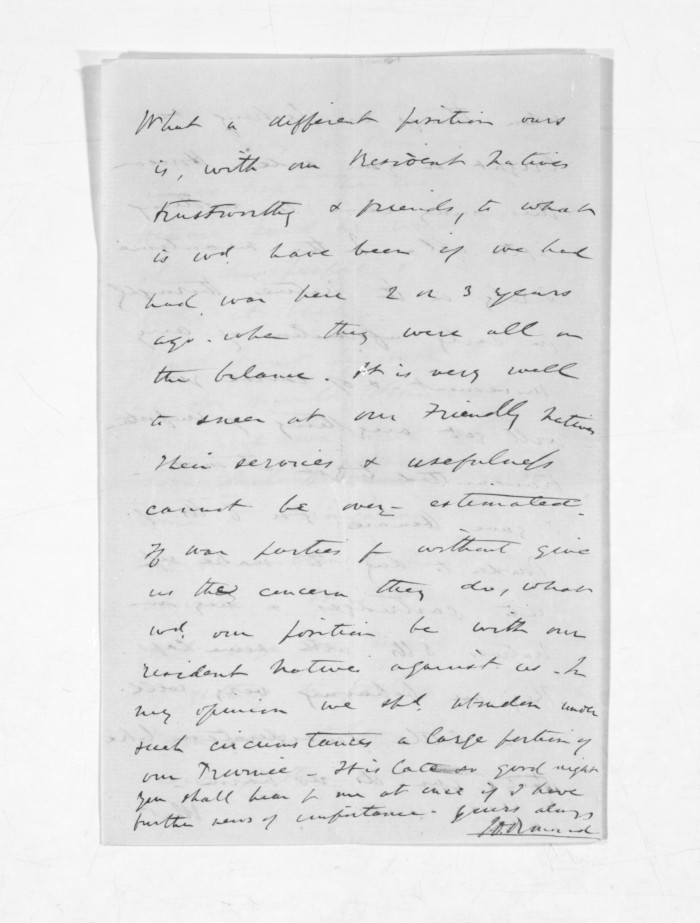 What a different position ours
is, with our Resident Natives
trustworthy & friends, to what
is wd have been if we had
had war here 2 or 3 years
ago - when they were all in
the balance. It is very well
to sneer at our Friendly Natives
their services & usefulness
cannot be over-estimated.
If war parties fr without give
us the concern they do, what
wd our position be with our
resident Natives against us - In
my opinion we shd abandon under
such circumstances a large portion of
our Province - It is late so good night
You shall hear fr me at once if I have
further news of importance - Yours always
JD Ormond